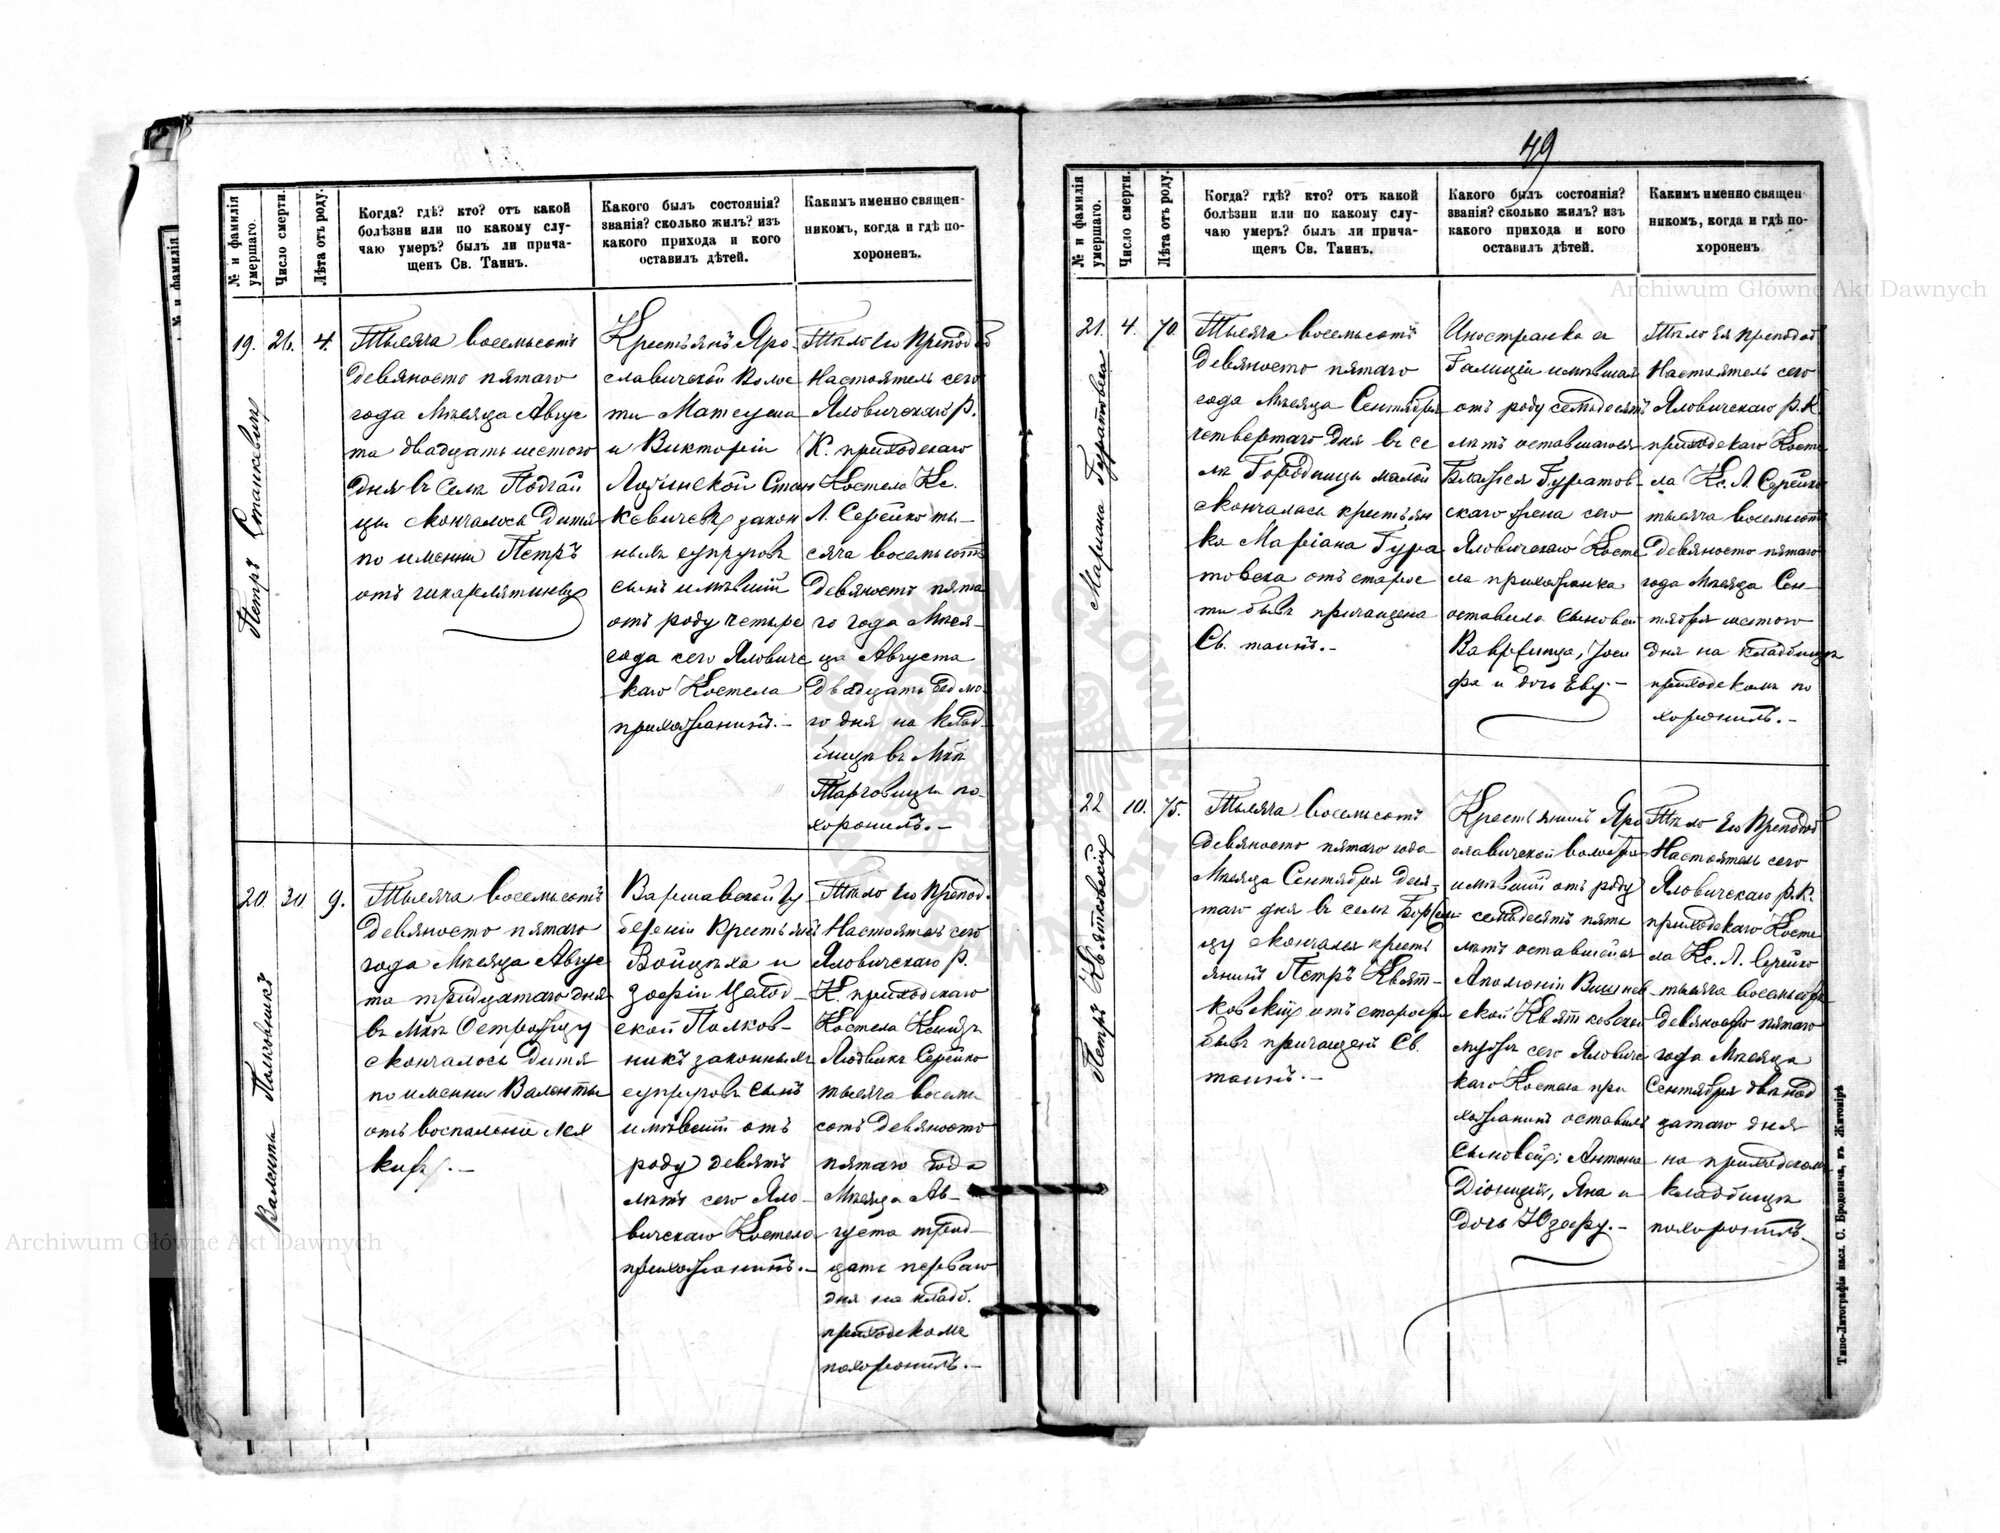 49
№ и фамилія
№ и фамилія умершаго.
Число смерти.
Лѣта отъ роду.
Когда? гдѣ? кто? отъ какой
болѣзни или по какому слу-
чаю умеръ? былъ ли прича-
щенъ Св. Таинъ.
Какого былъ состоянія?
званія? сколько жилъ? изъ
какого прихода и кого
оставилъ дѣтей.
Какимъ именно священ-
никомъ, когда и гдѣ по-
хороненъ.
19.
26.
4.
Петръ Станкевичъ
Тысяча восемьсотъ
девяносто пятаго
года Мѣсяца Авгус
та двадцать шестого
дня въ селѣ Подгай
цы скончалось дитя
по имени Петръ
отъ
Крестьянъ Яро-
славичской Волос
ти Матеуша
и Викторіи
Лозинской Стан
кевичевъ закон
ныхъ супруговъ
сынъ имѣвшій
отъ роду четыре
года сего Яловичс
каго Костела
прихожанинъ.-
Тѣло Его Преподоб
Настоятель сего
Яловичскаго Р.
К. приходскаго
Костела Кс.
Л. Серейко ты-
сяча восемьсотъ
девяносто пята
го года Мѣся-
ца Августа
двадцать седмо-
го дня на клад-
бищѣ въ Мкѣ
Торговицы по-
хоронилъ.-
20.
30
9.
Валентъ Полковникъ
Тысяча восемьсотъ
девяносто пятаго
года Мѣсяца Авгус
та тридцатаго дня
въ Мкѣ Острожцу
скончалось Дитя
по имени Валенты
отъ воспаленія лег
кихъ.-
Варшавской Гу
берніи Крестьянъ
Войцѣха и
Зофіи
ской Полков-
никъ законныхъ
супруговъ сынъ
имѣвшій отъ
роду девять
лѣтъ сего Яло-
вичскаго Костела
прихожанинъ.-
Тѣло Его Препод.
Настоятель сего
Яловичскаго Р.
К. приходскаго
Костела Ксендзъ
Людвикъ Серейко
тысяча восемь
сотъ девяносто
пятаго года
Мѣсяца Ав-
густа трид-
цать перваго
дня на кладб.
приходскомъ
похоронилъ.-
№ и фамилія умершаго.
Число смерти.
Лѣта отъ роду.
Когда? гдѣ? кто? отъ какой
болѣзни или по какому слу-
чаю умеръ? былъ ли прича-
щенъ Св. Таинъ.
Какого былъ состоянія?
званія? сколько жилъ? изъ
какого прихода и кого
оставилъ дѣтей.
Какимъ именно священ-
никомъ, когда и гдѣ по-
хороненъ
21.
4.
70.
Маріана Гуратовска
Тысяча восемьсотъ
девяносто пятаго
года Мѣсяца Сентября
четвертаго дня въ се
лѣ Городницы малой
скончалась крестьян
ка Маріана Гура
товска отъ старос
ти бывъ причащена
Св. таинъ.-
Иностранка съ
Галиціи имѣвшая
отъ роду семьдесятъ
лѣтъ оставшагося
Блажея Гуратов-
скаго жена сего
Яловичскаго Косте
ла прихожанка
оставила сыновей
Ваврѣнца, Іоси
фа и дочь Еву.-
Тѣло Ея Преподоб
Настоятель сего
Яловичскаго Р.К.
приходскаго Косте
ла Кс. Л. Серейко
тысяча восемьсотъ
девяносто пятаго
года Мѣсяца Сен-
тября шестого
дня на кладбищѣ
приходскомъ по
хоронилъ.-
22
10.
75.
Петръ Квятковскій
Тысяча восемьсотъ
девяносто пятаго года
Мѣсяца Сентября деся-
таго дня въ селѣ
цу скончался кресть
янинъ Петръ Квят-
ковскій отъ старости
бывъ причащенъ Св.
таинъ.-
Крестьянинъ Яро
славичской волости
имѣвшій отъ роду
семьдесятъ пять
лѣтъ оставшейся
Аполоніи Вишнев
ской Квятковской
мужъ сего Яловичс
каго Костела при
хожанинъ оставилъ
сыновей: Антона
Діонизія, Яна и
дочь Юзефу.-
Тѣло Его Преподоб
Настоятель сего
Яловичскаго Р.К.
приходскаго Косте
ла Кс. Л. Серейко
тысяча восемьсотъ
девяносто пятаго
года Мѣсяца
Сентября двѣнад
цатаго дня
на приходскомъ
кладбищѣ
похоронилъ.-
Типо-Литографія насл. С. Бродовича, въ Житомірѣ
Archiwum Główne Akt Dawnych
Archiwum Główne Akt Dawnych
ARCHIWUM GŁÓWNE AKT DAWNYCH